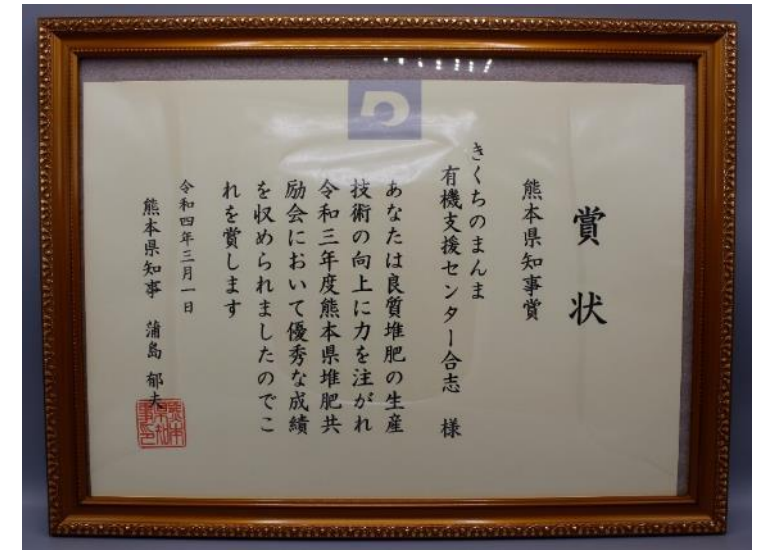 賞状
熊本県知事賞
きくちのまんま
有機支援センター合志 様
あなたは良質堆肥の生産
技術の向上に力を注がれ
令和三年度熊本県堆肥共
励会において優秀な成績
を収められましたのでこ
れを賞します
令和四年三月一日
熊本県知事 蒲島 郁夫
熊本県知事印